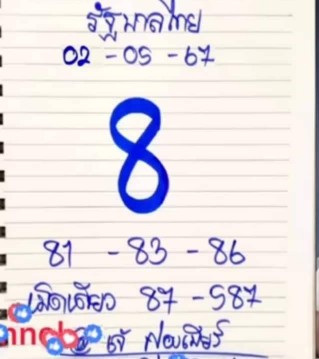 รัฐบาลไทย
02 - 05 - 67
8
81 - 83 - 86
เม็ดเดียว 87 - 987
เจ๊ ฟองเบียร์